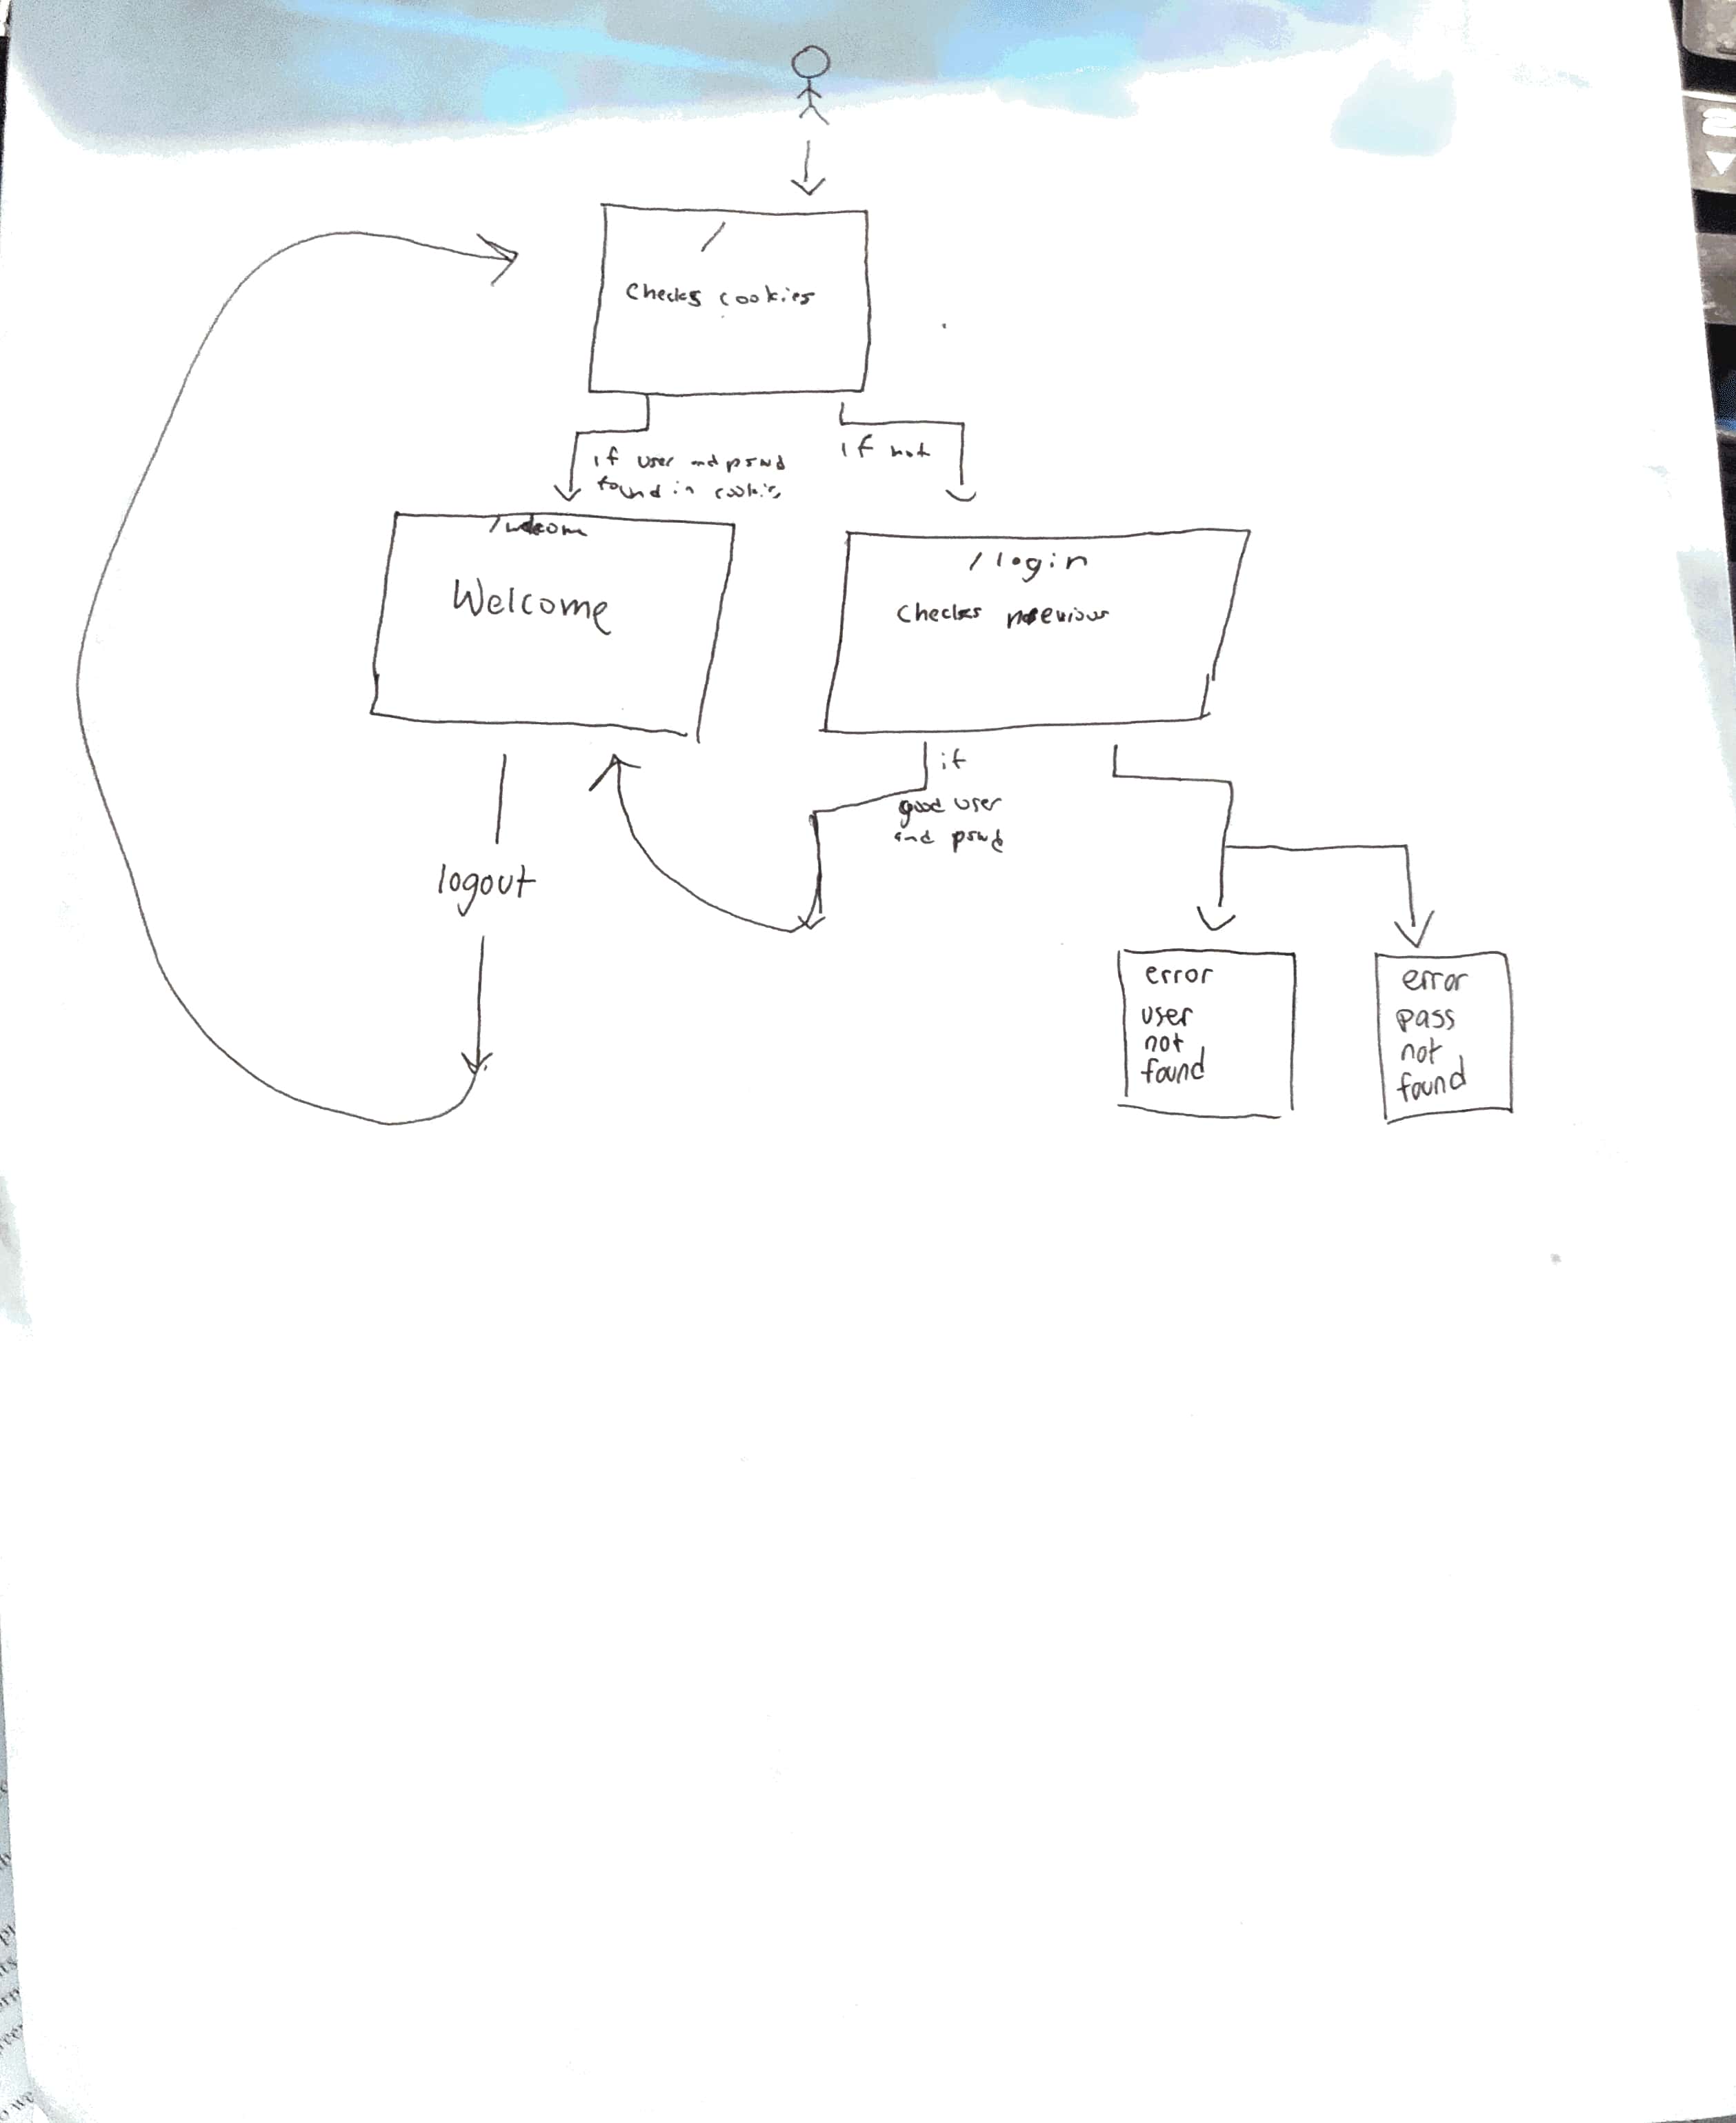 /
Checks cookies
if user and pswd
found in cookies
if not
/welcom
Welcome
/login
Checks
if
good user
and pswd
logout
error
user
not
found
error
pass
not
found